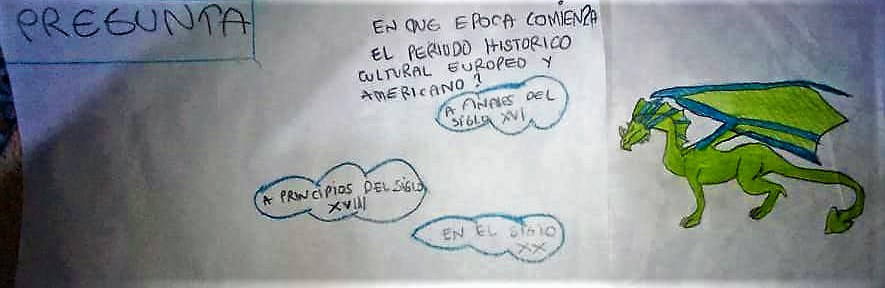 PREGUNTA
EN QUE EPOCA COMIENZA
EL PERIODO HISTORICO
CULTURAL EUROPEO Y
AMERICANO?
A FINALES DEL
SIGLO XVI
A PRINCIPIOS DEL SIGLO
XVIII
EN EL SIGLO
XX